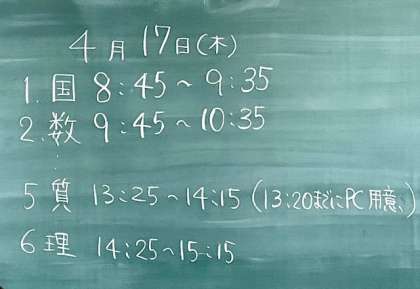 4月17日(木)
1.国 8:45~9:35
2.数 9:45~10:35
⋮
5 質 13:25~14:15(13:20までにPC用意、)
6 理 14:25~15:15